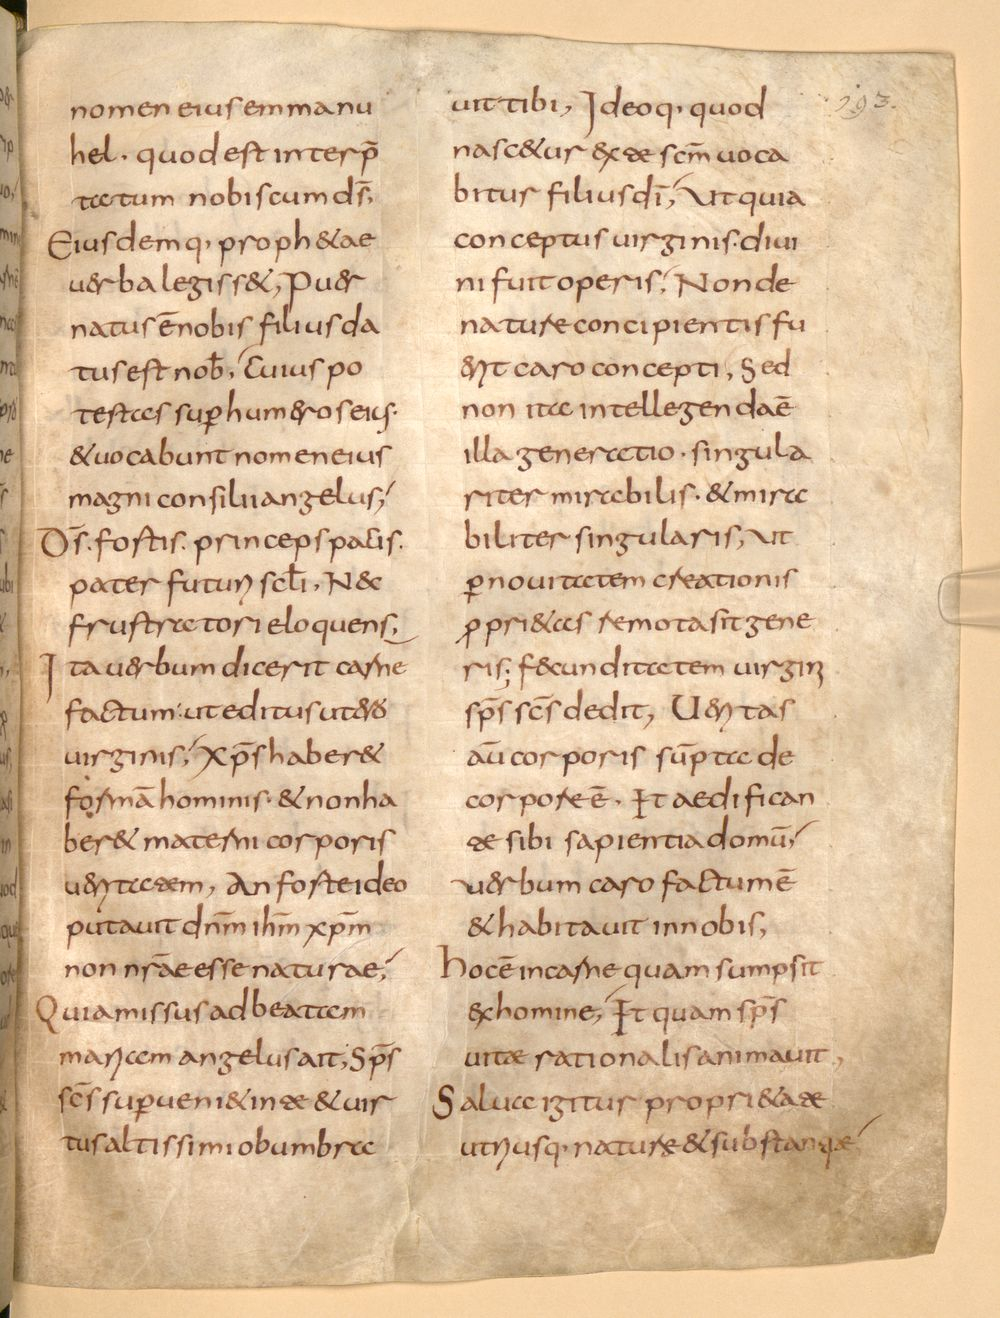 nomen eius emmanu
hel· quod est interp̄
tatum nobiscum dš,
Eiusdemq· proph&ae
uerba legiss&, Puer
natus ē nobis filius da
tus est nob̄, Cuius po
testas sup̄ humeros eius·
& uocabunt nomen eius
magni consilii angelus,
Dš· fortis· princeps pacis·
pater futuri scl̄i, Nec
frustratorie loquens,
Ita uerbum dicerit carne
factum· ut editus utero
virginis, Xp̄s haber&
formā hominis· & non ha
ber& materni corporis
ueritatem, An forte ideo
putauit dn̄m ih̄m xp̄m
non nr̄ae esse naturae,
Quia missus ad beatam
mariam angelus ait, Sp̄s
sc̄s sup̄ueni& in te & uir
tus altissimi obumbra
293.
uit tibi, Ideoq· quod
nasc&ur ex te sc̄m uoca
bitur filius dī, Ut quia
conceptus uirginis· diui
ni fuit operis, Non de
nature concipientis fu
erit caro concepti, Sed
non ita intellegenda ē
illa generatio· singula
riter mirabilis· & mira
biliter singularis, Ut
p̄ nouitatem creationis
ppri&as remota sit gene
ris; fecunditatem uirgini
sp̄s sc̄s dedit, Ueritas
aū corporis sūpta de
corpore ē· Et aedifican
te sibi sapientia domū,
uerbum caro factum ē
& habitauit in nobis,
hoc ē in carne quam sumpsit
ex homine, Et quam sp̄s
uitae rationalis animauit,
Salua igitur propri&ate
utriusq· nature & substantiae